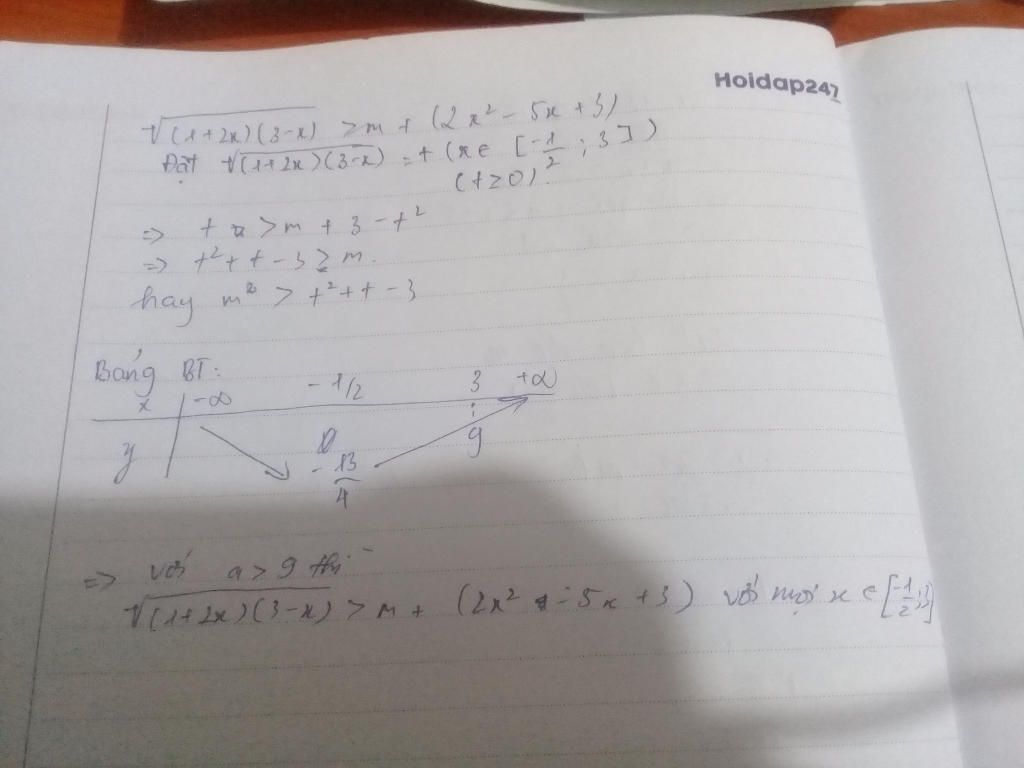 Hoidap247
√(1+2x)(3-x) > m + (2x² - 5x + 3)
Đặt √(1+2x)(3-x) = t (x ∈ [-1/2 ; 3])
(t ≥ 0)
=> t > m + 3 - t²
=> t² + t - 3 ≥ m.
hay m > t² + t - 3
Bảng BT:
x -∞ -1/2 3 +∞
y -13/4 9
=> với a > 9 thì
√(1+2x)(3-x) > m + (2x² - 5x + 3) với mọi x ∈ [-1/2;3]